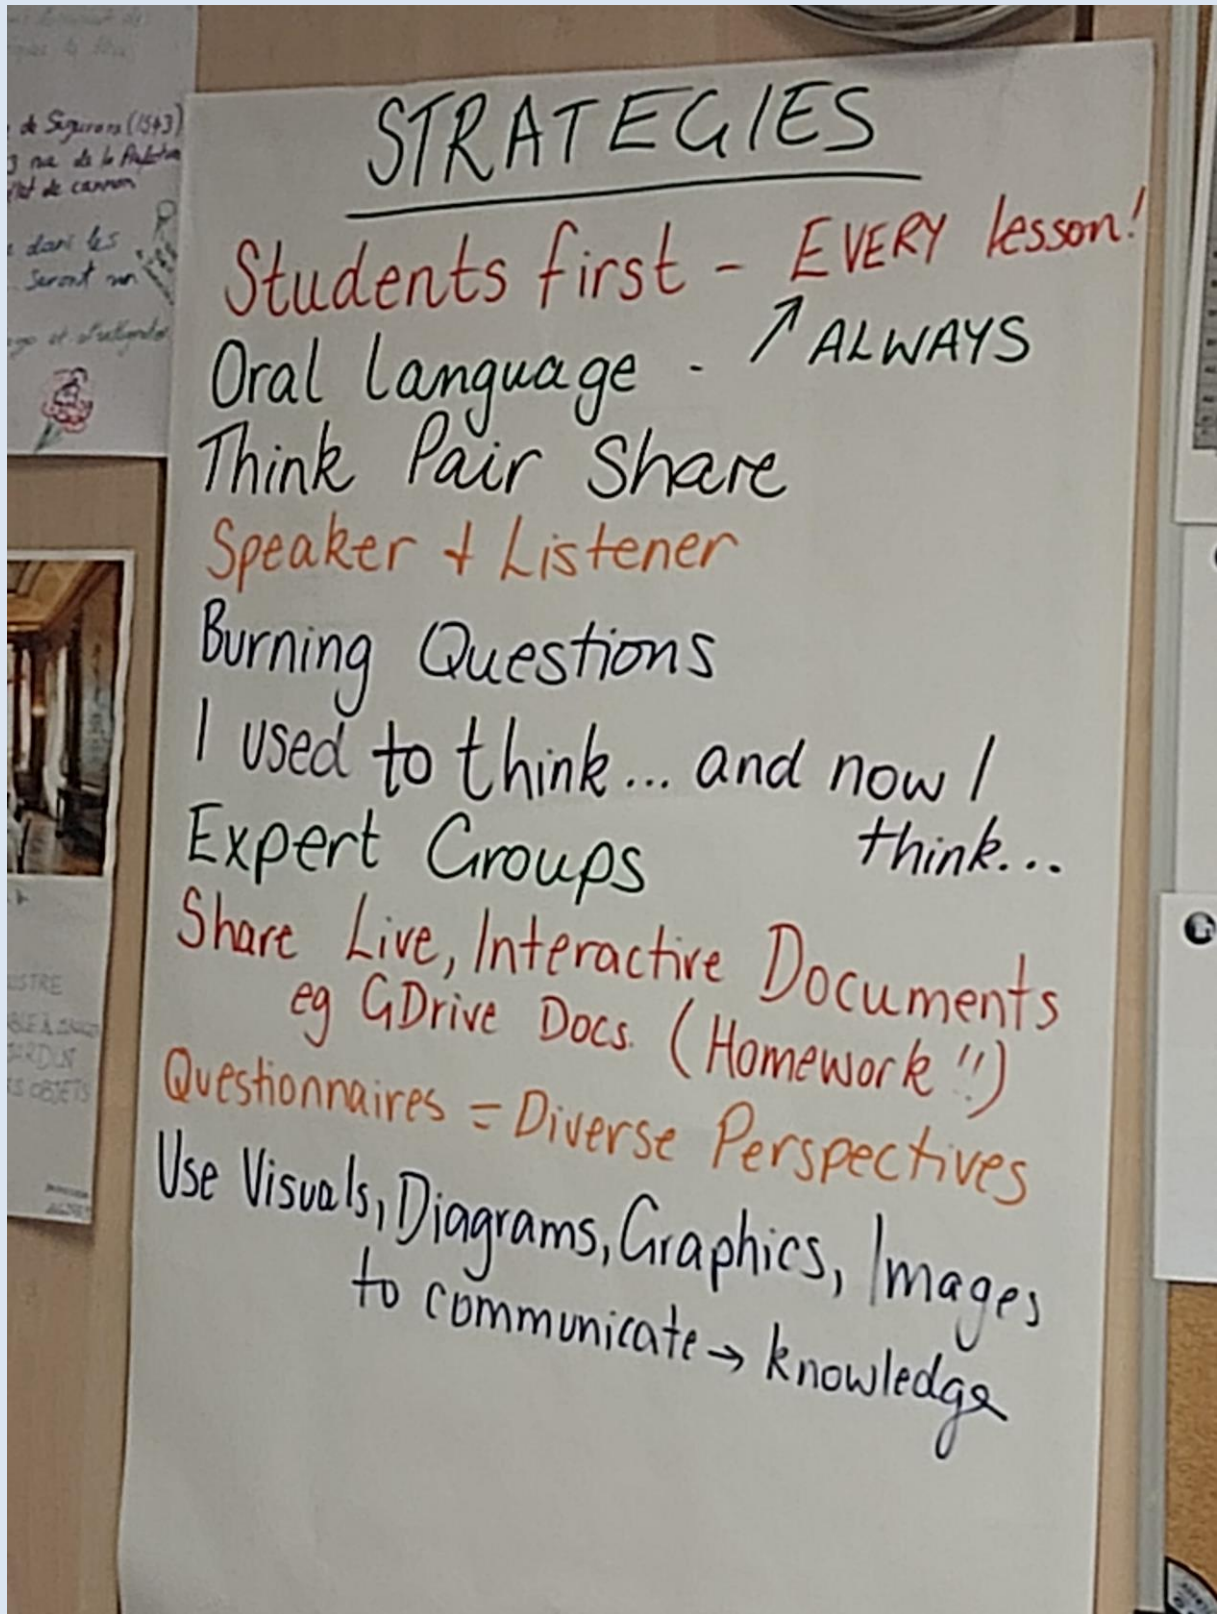 de Sigurana (1543)
rue de la
de cannon
dans les
Seront un
et
STRATEGIES
Students first - EVERY lesson!
Oral language - ↗ ALWAYS
Think Pair Share
Speaker + Listener
Burning Questions
I used to think... and now I
think...
Expert Groups
Share Live, Interactive Documents
eg GDrive Docs. (Homework!!)
Questionnaires = Diverse Perspectives
Use Visuals, Diagrams, Graphics, Images
to communicate → knowledge
OBJETS